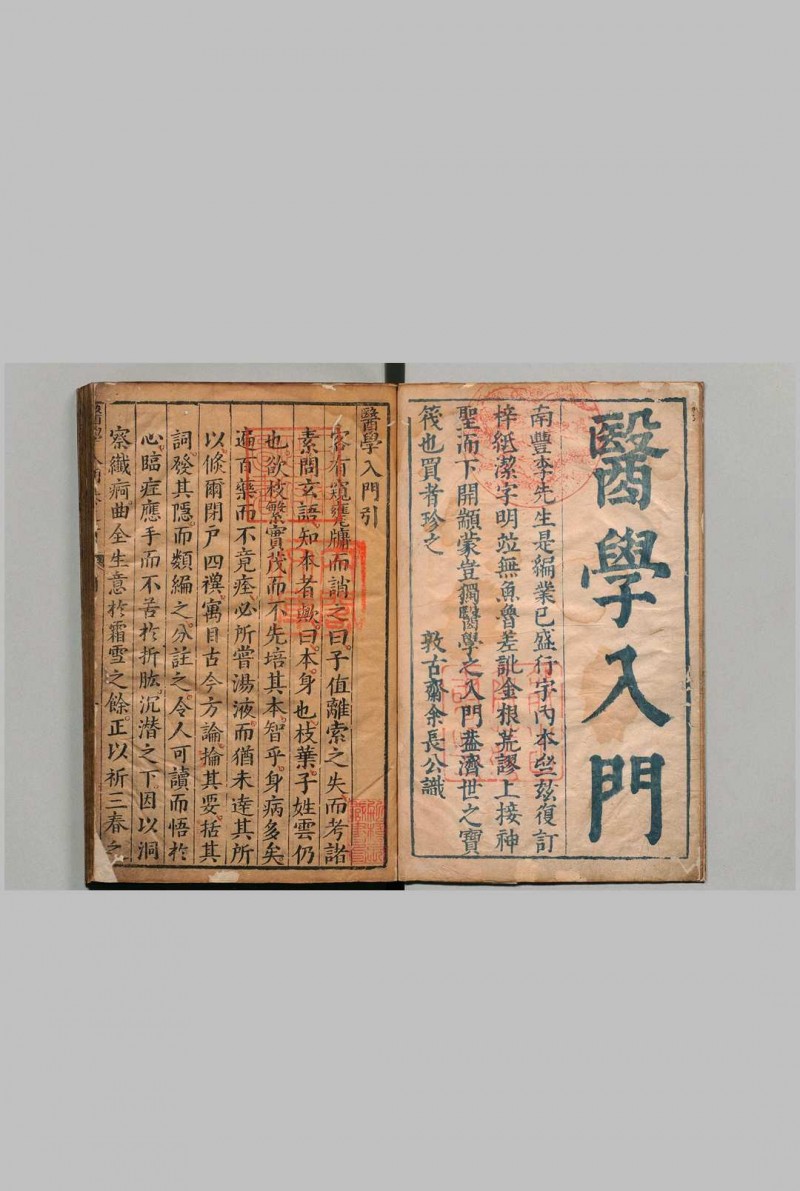 醫學入門
南豐李先生是編業已盛行宇內本坐茲復訂
梓紙潔字明竝無魚魯差訛金根荒謬上接神
聖而下開顓蒙豈獨醫學之入門葢濟世之寶
筏也買者珍之 敦古齋余長公識
醫學入門引
客有窺甕牖而誚之曰子值離索之失而考諸
素問玄語知本者歟曰本身也枝葉子姓雲仍
也欲枝繁實茂而不先培其本智乎身病多矣
遍百藥而不竟痊必所嘗湯液而猶未達其所
以倐爾閉戸四禩寓目古今方論掄其要括其
詞發其隱而類編之分註之令人可讀而悟於
心臨症應手而不苦於折肱沉潛之下因以洞
察纖疴曲全生意於霜雪之餘正以祈三春之